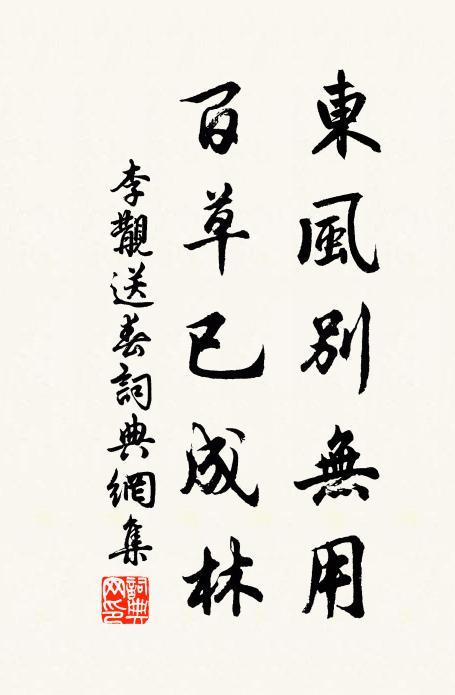 東風別無用
百草已成林
李觀送春詞典網集
詞典
網印